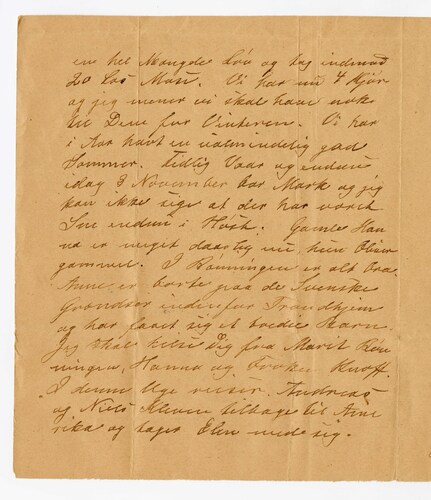 en hel Mængde Løv og tog indmed
20 Las Mose. Vi har nu 4 Kjør
og jeg mener vi skal have nok
til Dem for Vinteren. Vi har
i Aar havt en ualmindelig god
Sommer. Tidlig Vaar og endnu
idag 8 November bar Mark og jeg
kan ikke sige at der har været
Sne endnu i Høst. Gamle Han
na er meget daarlig nu, hun bliver
gammel. I Rønningen er alt bra.
Anne er borte paa de Svenske
Grændser indenfor Trondhjem
og har faaet sig et tredie Barn.
Jeg skal hilse Dig fra Marit Røn
ningen, Hanna og Frøken Knoff.
I denne Uge reiser Andreas
og Niels Kleven tilbage til Ame
rika og tager Elen med sig.